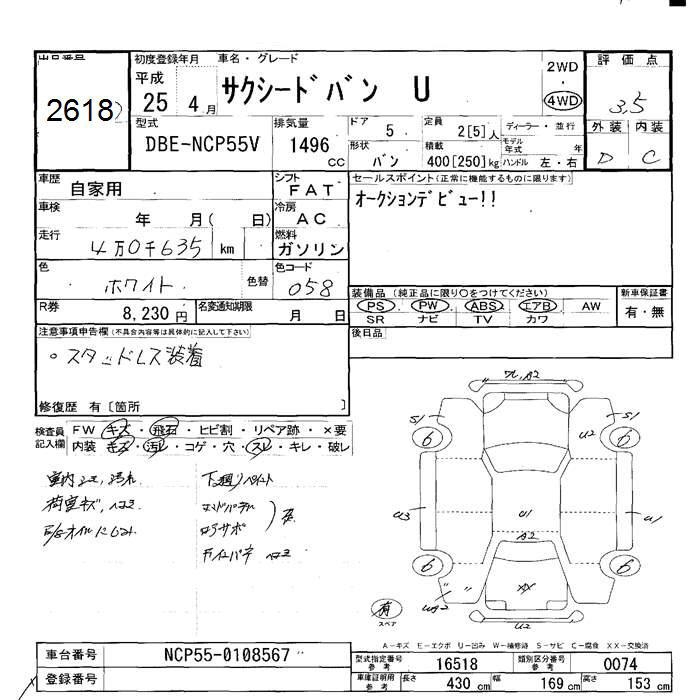 出品番号
2618
初度登録年月
平成
25 4 月
車名・グレード
サクシードバン U
2WD
・
4WD
評価点
3.5
外装 内装
D C
型式
DBE-NCP55V
排気量
1496
cc
ドア
5
形状
バン
定員
2[5]人
積載
400[250]kg
ディーラー・並行
モデル
年式 年
ハンドル 左・右
車歴
自家用
シフト
FAT
車検
年 月( 日)
冷房
AC
走行
4万0千635 km
燃料
ガソリン
色
ホワイト
色替
色コード
058
R券
8,230円
名変通知期限
月 日
セールスポイント(正常に機能するものに限ります)
オークションデビュー!!
装備品(純正品に限り○をつけてください)
PS PW ABS エアB AW
SR ナビ TV カワ
新車保証書
有・無
後日品
注意事項申告欄(不具合内容等は具体的に記入して下さい)
○スタッドレス装着
修復歴 有〔箇所 〕
検査員
記入欄
FW キズ・飛石・ヒビ割・リペア跡・×要
内装 キズ・汚レ・コゲ・穴・スレ・キレ・破レ
下廻りペイント
S1
S1
6
6
U2
U3
U1
U1
A2
6
6
XX
UA2
U2
有
スペア
A-キズ E-エクボ U-凹み W-補修済 S-サビ C-腐食 XX-交換済
車台番号
NCP55-0108567
登録番号
型式指定番号
参考
16518
類別区分番号
参考
0074
車庫証明用
参考
長さ
430 cm
幅
169 cm
高さ
153 cm